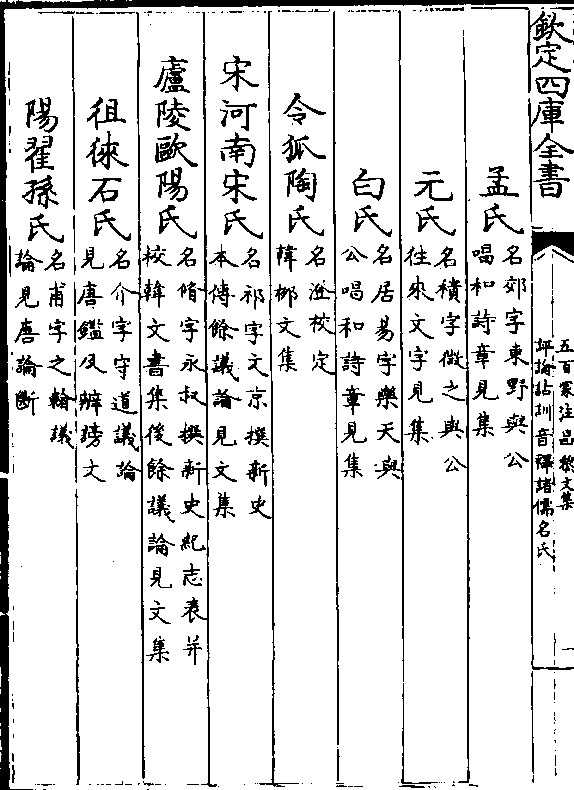 欽定四庫全書
五百家注昌黎文集
評論詁訓音釋諸儒名氏
一
孟氏
名郊字東野與公
唱和詩章見集
元氏
名積字微之與公
往來文字見集
白氏
名居易字樂天與
公唱和詩章見集
令狐陶氏
名澄校定
韓栁文集
宋河南宋氏
名祁字文京撰新史
本傳餘議論見文集
廬陵歐陽氏
名脩字永叔撰新史紀志表并
校韓文書集後餘議論見文集
徂徠石氏
名介字守道議論
見唐鑑及辨謗文
陽翟孫氏
名甫字之翰議
論見唐論斷